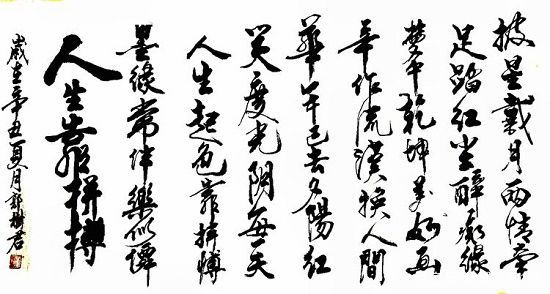 披星戴月两情牵
足踏红尘醉缘
中乾坤美如画
辛作流换人间
华年已去夕阳红
笑度光阴每一天
人生起色靠拼搏
墨缘常伴乐似
人生靠拼搏
岁在辛丑夏月郭树君